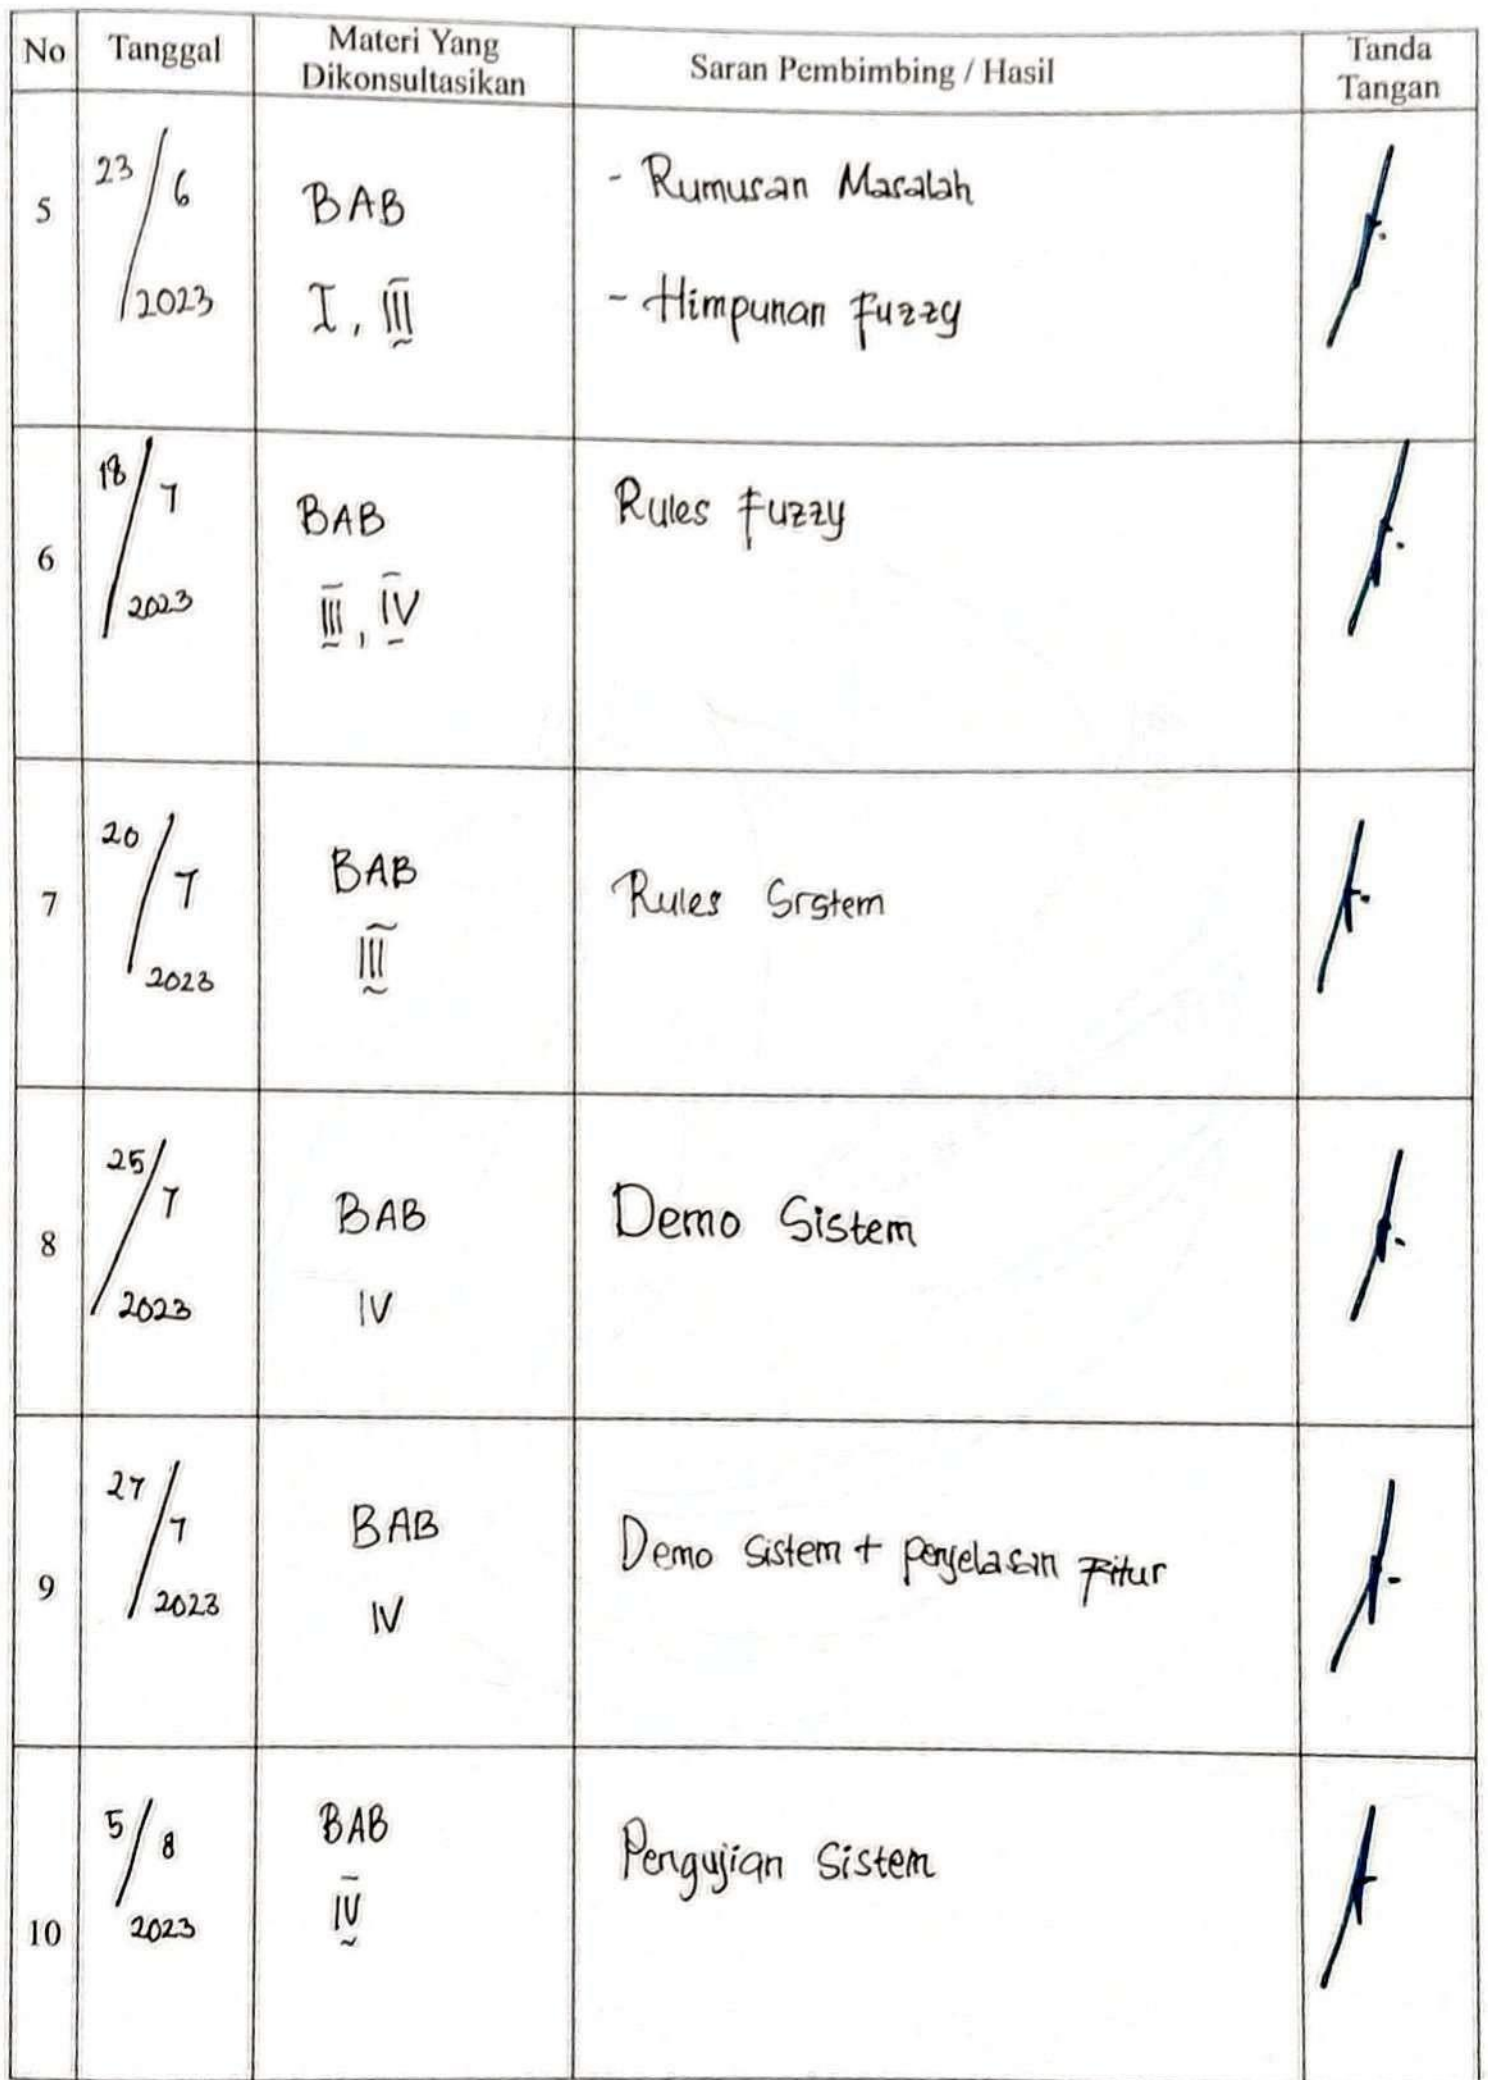 No Tanggal Materi Yang Dikonsultasikan Saran Pembimbing / Hasil Tanda Tangan
5 23/6 2023 BAB I, III - Rumusan Masalah
- Himpunan Fuzzy
6 18/7 2023 BAB III, IV Rules Fuzzy
7 20/7 2023 BAB III Rules Srstem
8 25/7 2023 BAB IV Demo Sistem
9 27/7 2023 BAB IV Demo Sistem + penjelasan Fitur
10 5/8 2023 BAB IV Pengujian Sistem